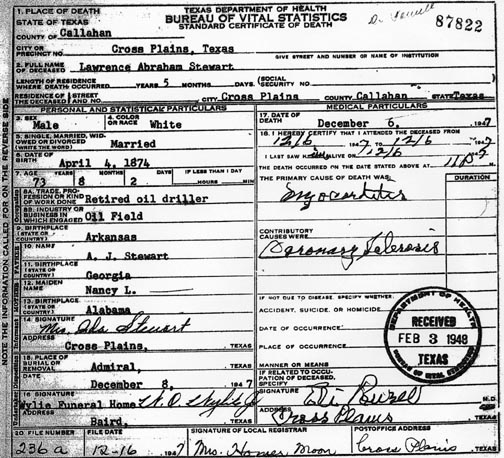 TEXAS DEPARTMENT OF HEALTH
BUREAU OF VITAL STATISTICS
STANDARD CERTIFICATE OF DEATH
87822
1. PLACE OF DEATH
STATE OF TEXAS
COUNTY OF Callahan
CITY OR PRECINCT NO. Cross Plains, Texas
GIVE STREET AND NUMBER OR NAME OF INSTITUTION
2. FULL NAME OF DECEASED Lawrence Abraham Stewart
LENGTH OF RESIDENCE WHERE DEATH OCCURRED YEARS 5 MONTHS DAYS (SOCIAL SECURITY NO.
RESIDENCE OF THE DECEASED STREET AND NO. CITY Cross Plains COUNTY Callahan STATE Texas
PERSONAL AND STATISTICAL PARTICULARS
3. SEX Male
4. COLOR OR RACE White
5. SINGLE, MARRIED, WIDOWED OR DIVORCED (WRITE THE WORD) Married
6. DATE OF BIRTH April 4, 1874
7. AGE YEARS MONTHS DAYS IF LESS THAN 1 DAY
73 8 2 HOURS MIN
8A. TRADE, PROFESSION OR KIND OF WORK DONE Retired oil driller
8B. INDUSTRY OR BUSINESS IN WHICH ENGAGED Oil Field
9. BIRTHPLACE (STATE OR COUNTRY) Arkansas
10. NAME A. J. Stewart
11. BIRTHPLACE (STATE OR COUNTRY) Georgia
12. MAIDEN NAME Nancy L.
13. BIRTHPLACE (STATE OR COUNTRY) Alabama
14. SIGNATURE Mrs. Ida Stewart
ADDRESS Cross Plains,
TEXAS
15. PLACE OF BURIAL OR REMOVAL Admiral,
TEXAS
DATE December 8, 1947
16. SIGNATURE Wylie Funeral Home
ADDRESS Baird,
TEXAS
MEDICAL PARTICULARS
17. DATE OF DEATH December 6, 1947
18. I HEREBY CERTIFY THAT I ATTENDED THE DECEASED FROM
12/6 1947 TO 12/6 1947
I LAST SAW HIM ALIVE ON 12/6 1947
THE DEATH OCCURRED ON THE DATE STATED ABOVE AT
THE PRIMARY CAUSE OF DEATH WAS: DURATION
Myocarditis
CONTRIBUTORY CAUSES WERE:
Coronary Sclerosis
IF NOT DUE TO DISEASE, SPECIFY WHETHER:
ACCIDENT, SUICIDE, OR HOMICIDE
DATE OF OCCURRENCE
PLACE OF OCCURRENCE
MANNER OR MEANS
IF RELATED TO OCCUPATION OF DECEASED, SPECIFY
SIGNATURE M.D.
ADDRESS Cross Plains TEXAS
DEPARTMENT OF HEALTH
RECEIVED
FEB 3 1948
TEXAS
BUREAU OF VITAL STATISTICS
20. FILE NUMBER FILE DATE SIGNATURE OF LOCAL REGISTRAR POSTOFFICE ADDRESS
236a 12-16 1947 Mrs. Homer Moon Cross Plains TEXAS
NOTE THE INFORMATION CALLED FOR ON THE REVERSE SIDE